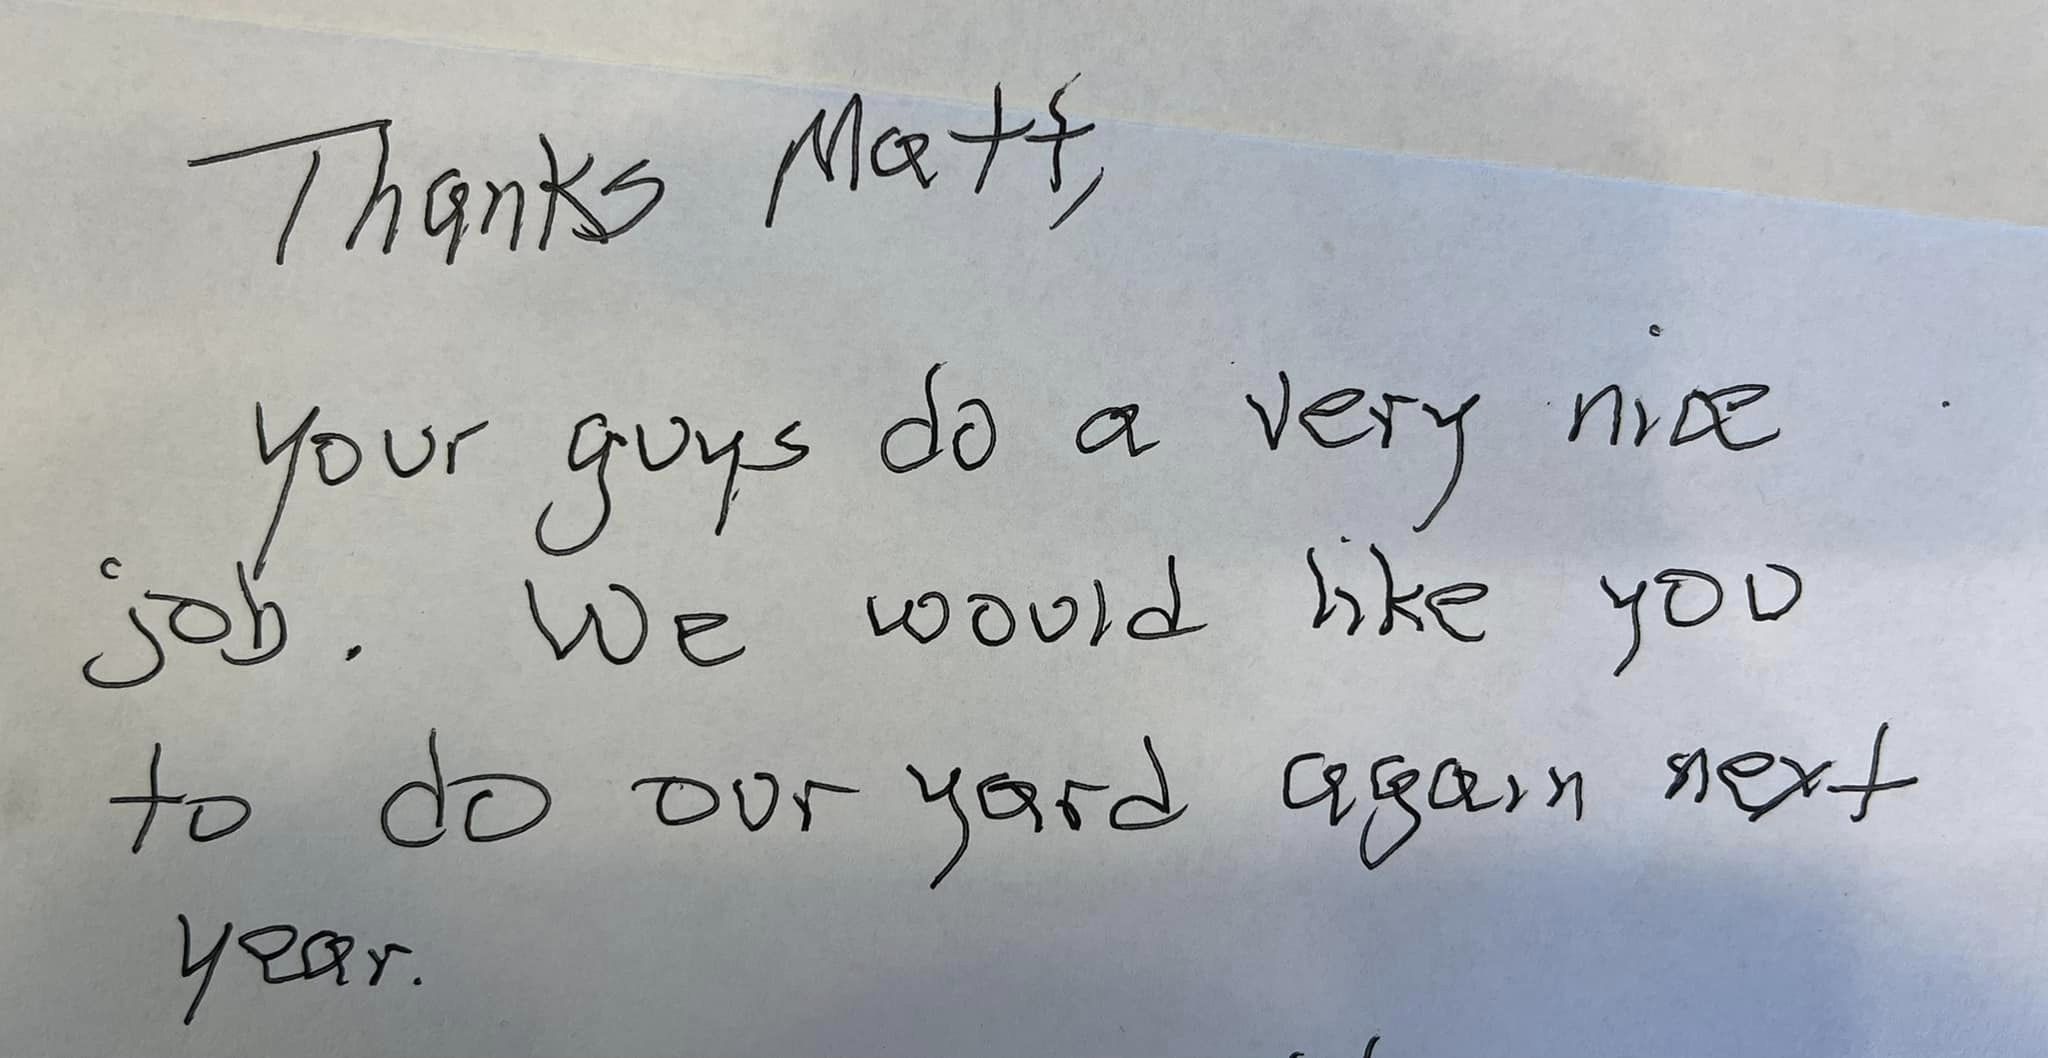 Thanks Matt,
your guys do a very nice
job. We would like you
to do our yard again next
year.